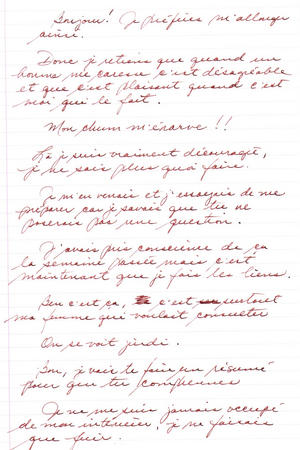 Bonjour! Je préfère m'allonger
ainsi.
Donc je retiens que quand un
homme me caresse c'est désagréable
et que c'est plaisant quand c'est
moi qui le fait.
Mon chum m'énarve !!
Là je suis vraiment découragé,
je ne sais plus quoi faire.
Je m'en venais et j'essayais de me
préparer car je savais que tu ne
poserais pas une question.
J'avais pris conscience de ça
la semaine passée mais c'est
maintenant que je fais les liens.
Bon c'est ça, c'est surtout
ma femme qui voulait consulter
On se voit jeudi.
Bon, je vais te faire un résumé
pour que tu comprennes
Je ne me suis jamais occupé
de mon intérieur, je ne faisais
que fuir.